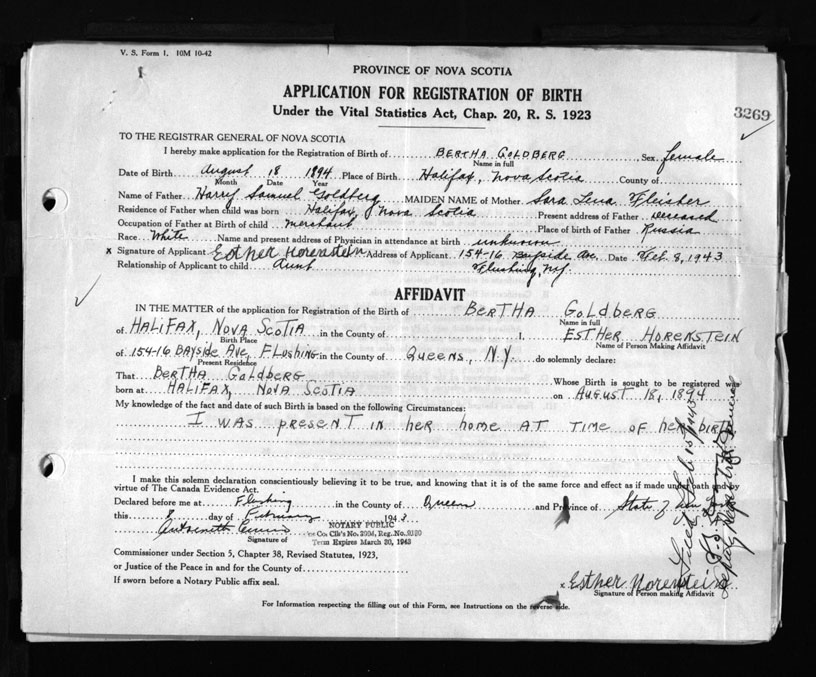 V. S. Form 1. 10M 10-42
PROVINCE OF NOVA SCOTIA
APPLICATION FOR REGISTRATION OF BIRTH
Under the Vital Statistics Act, Chap. 20, R. S. 1923
3269
TO THE REGISTRAR GENERAL OF NOVA SCOTIA
I hereby make application for the Registration of Birth of BERTHA GOLDBERG Sex female
Name in full
Date of Birth August 18 1894 Place of Birth Halifax, Nova Scotia County of
Month Date Year
Name of Father Harry Samuel Goldberg MAIDEN NAME of Mother Sara Lena Fleisher
Residence of Father when child was born Halifax, Nova Scotia Present address of Father Deceased
Occupation of Father at Birth of child merchant Place of birth of Father Russia
Race White Name and present address of Physician in attendance at birth unknown
x Signature of Applicant Esther Horenstein Address of Applicant 154-16 Bayside Ave. Date Feb. 8, 1943
Relationship of Applicant to child Aunt Flushing, N.Y.
AFFIDAVIT
IN THE MATTER of the application for Registration of the Birth of BERTHA GOLDBERG
Name in full
of HALIFAX, NOVA SCOTIA in the County of I, ESTHER HORENSTEIN
Birth Place Name of Person Making Affidavit
of 154-16 BAYSIDE AVE, FLUSHING in the County of QUEENS, N.Y. do solemnly declare:
Present Residence
That BERTHA GOLDBERG Whose Birth is sought to be registered was
born at HALIFAX, NOVA SCOTIA on AUGUST 18, 1894
My knowledge of the fact and date of such Birth is based on the following Circumstances:
I WAS PRESENT IN HER HOME AT TIME OF HER BIRTH
I make this solemn declaration conscientiously believing it to be true, and knowing that it is of the same force and effect as if made under oath and by
virtue of The Canada Evidence Act.
Declared before me at Flushing in the County of Queen and Province of State of New York
this 8 day of February 1943
NOTARY PUBLIC
Signature of
Term Expires March 30, 1943
Commissioner under Section 5, Chapter 38, Revised Statutes, 1923,
or Justice of the Peace in and for the County of
If sworn before a Notary Public affix seal.
x Esther Horenstein
Signature of Person making Affidavit
For Information respecting the filling out of this Form, see Instructions on the reverse side.